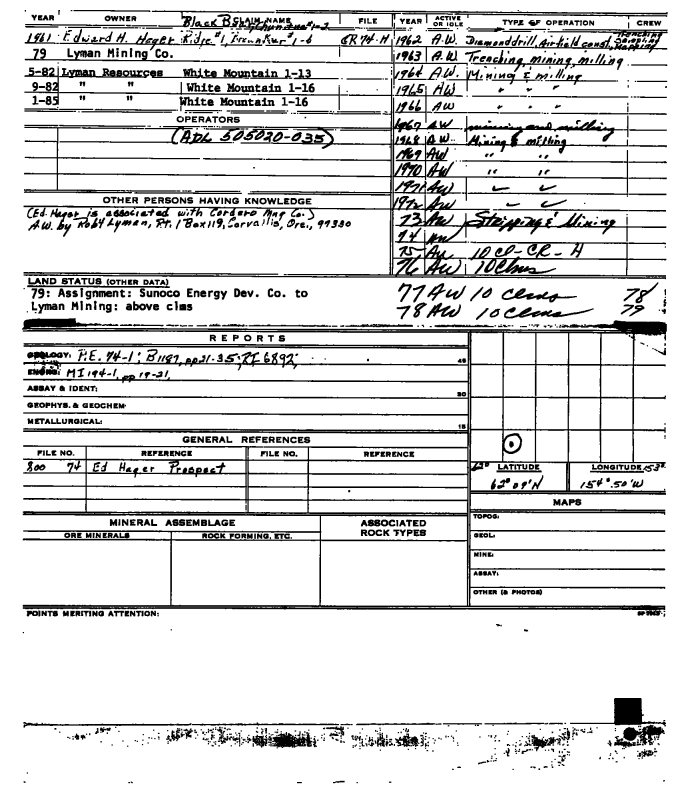 YEAR OWNER CLAIM NAME FILE YEAR ACTIVE OR IDLE TYPE OF OPERATION CREW
Black
1961 Edward H. Hager Ridge #1, #1-6 CR 74-H 1962 A.W. Diamond drill, Airfield const, Trenching Sampling Mapping
79 Lyman Mining Co. 1963 A.W Trenching, mining, milling
5-82 Lyman Resources White Mountain 1-13 1964 A.W. Mining & milling
9-82 " " White Mountain 1-16 1965 AW " " "
1-85 " " White Mountain 1-16 1966 AW " " "
OPERATORS 1967 AW mining and milling
(ADL 505020-035) 1968 A.W. Mining & milling
1969 AW " "
1970 AW " "
1971 AW " "
OTHER PERSONS HAVING KNOWLEDGE 1972 AW " "
(Ed. Hager is associated with Cordero Mng Co.) 73 AW Stripping & Mining
A.W. by Robt Lyman, Rt. 1 Box 119, Corvallis, Ore., 97330 74 AW
75 AW 10 Cl-CR-H
76 AW 10 Clms
LAND STATUS (OTHER DATA)
79: Assignment: Sunoco Energy Dev. Co. to 77 AW 10 clms 78
Lyman Mining: above clms 78 AW 10 clms 79
REPORTS
GEOLOGY: P.E. 74-1; B1187, pp21-35; RI 6892; 45
ENGNG: MI 194-1, pp 19-21,
ASSAY & IDENT: 30
GEOPHYS. & GEOCHEM.
METALLURGICAL: 15
GENERAL REFERENCES
FILE NO. REFERENCE FILE NO. REFERENCE
800 74 Ed Hager Prospect
62° LATITUDE LONGITUDE 153°
62° 09'N 154° 50'W
MAPS
MINERAL ASSEMBLAGE ASSOCIATED ROCK TYPES
ORE MINERALS ROCK FORMING, ETC.
TOPOG:
GEOL:
MINE:
ASSAY:
OTHER (& PHOTOS)
POINTS MERITING ATTENTION: